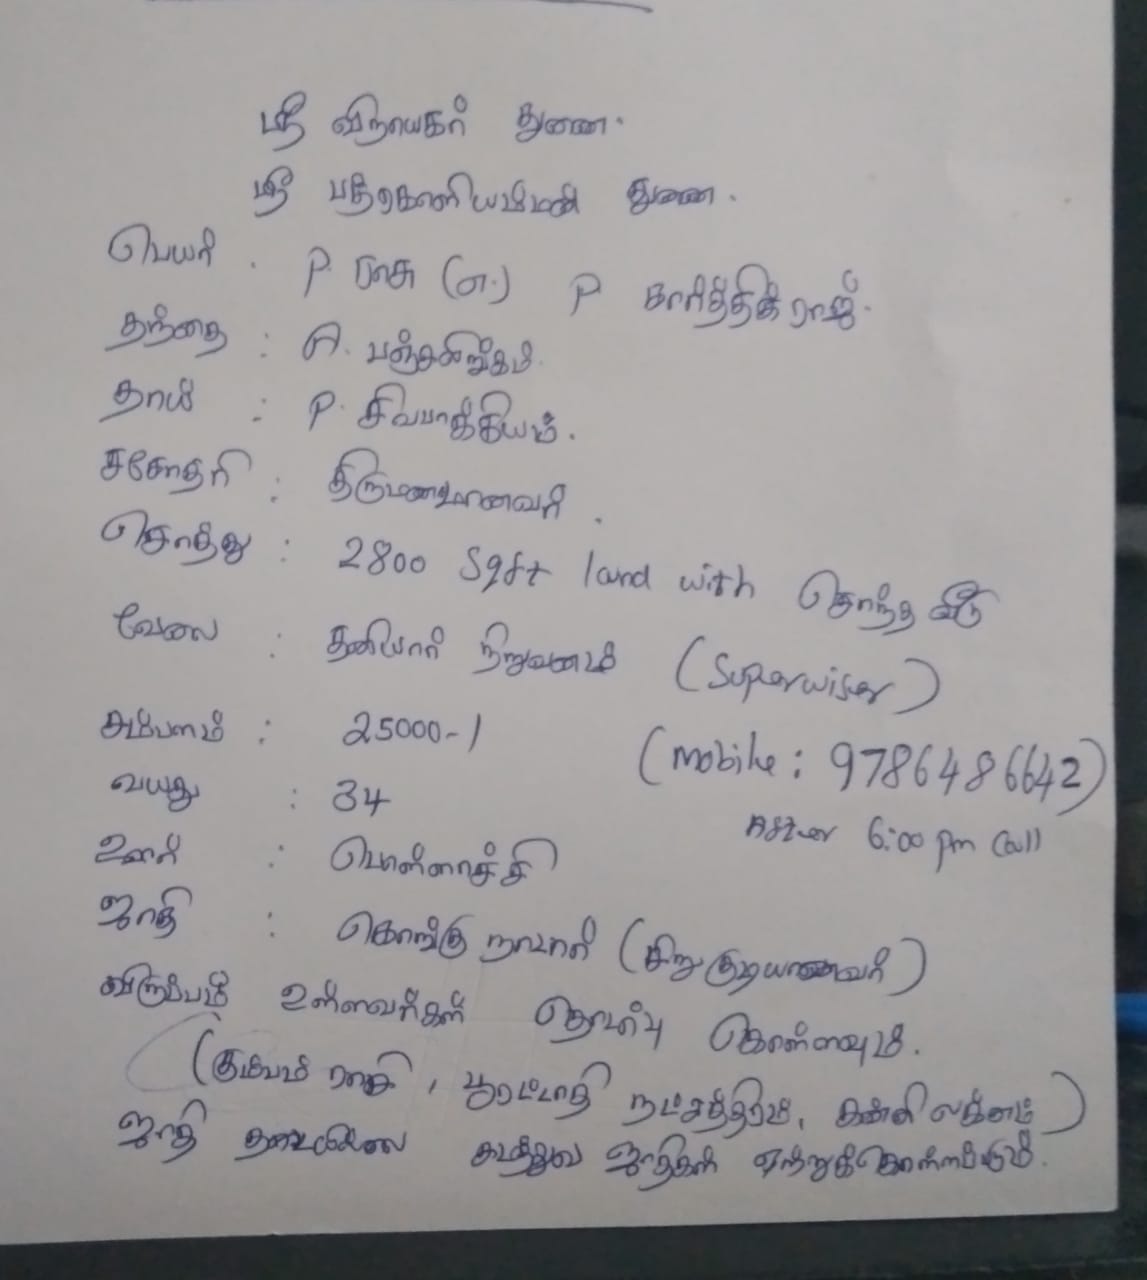 ஸ்ரீ விநாயகர் துணை.
ஸ்ரீ பத்ரகாளியம்மன் துணை.
பெயர் . P. ராசு (எ.) P கார்த்திக் ராஜ்.
தந்தை : A. பஞ்சலிங்கம்.
தாய் : P. சிவபாக்கியம்.
சகோதரி : திருமணமானவர் .
சொத்து : 2800 Sqft land with சொந்த வீடு
வேலை : தனியார் நிறுவனம் (Superwiser)
சம்பளம் : 25000-/
(Mobile : 9786486642)
வயது : 34
After 6:00 pm Call
ஊர் : பொள்ளாச்சி
ஜாதி : கொங்கு நாவர் (சிறுகுடியாணவர்)
விருப்பம் உள்ளவர்கள் தொடர்பு கொள்ளவும்.
(கும்பம் ராசி, பூரட்டாதி நட்சத்திரம், கன்னி லக்னம்)
ஜாதி தடையில்லை சமத்துவ ஜாதிகள் ஏற்றுக்கொள்ளப்படும்.